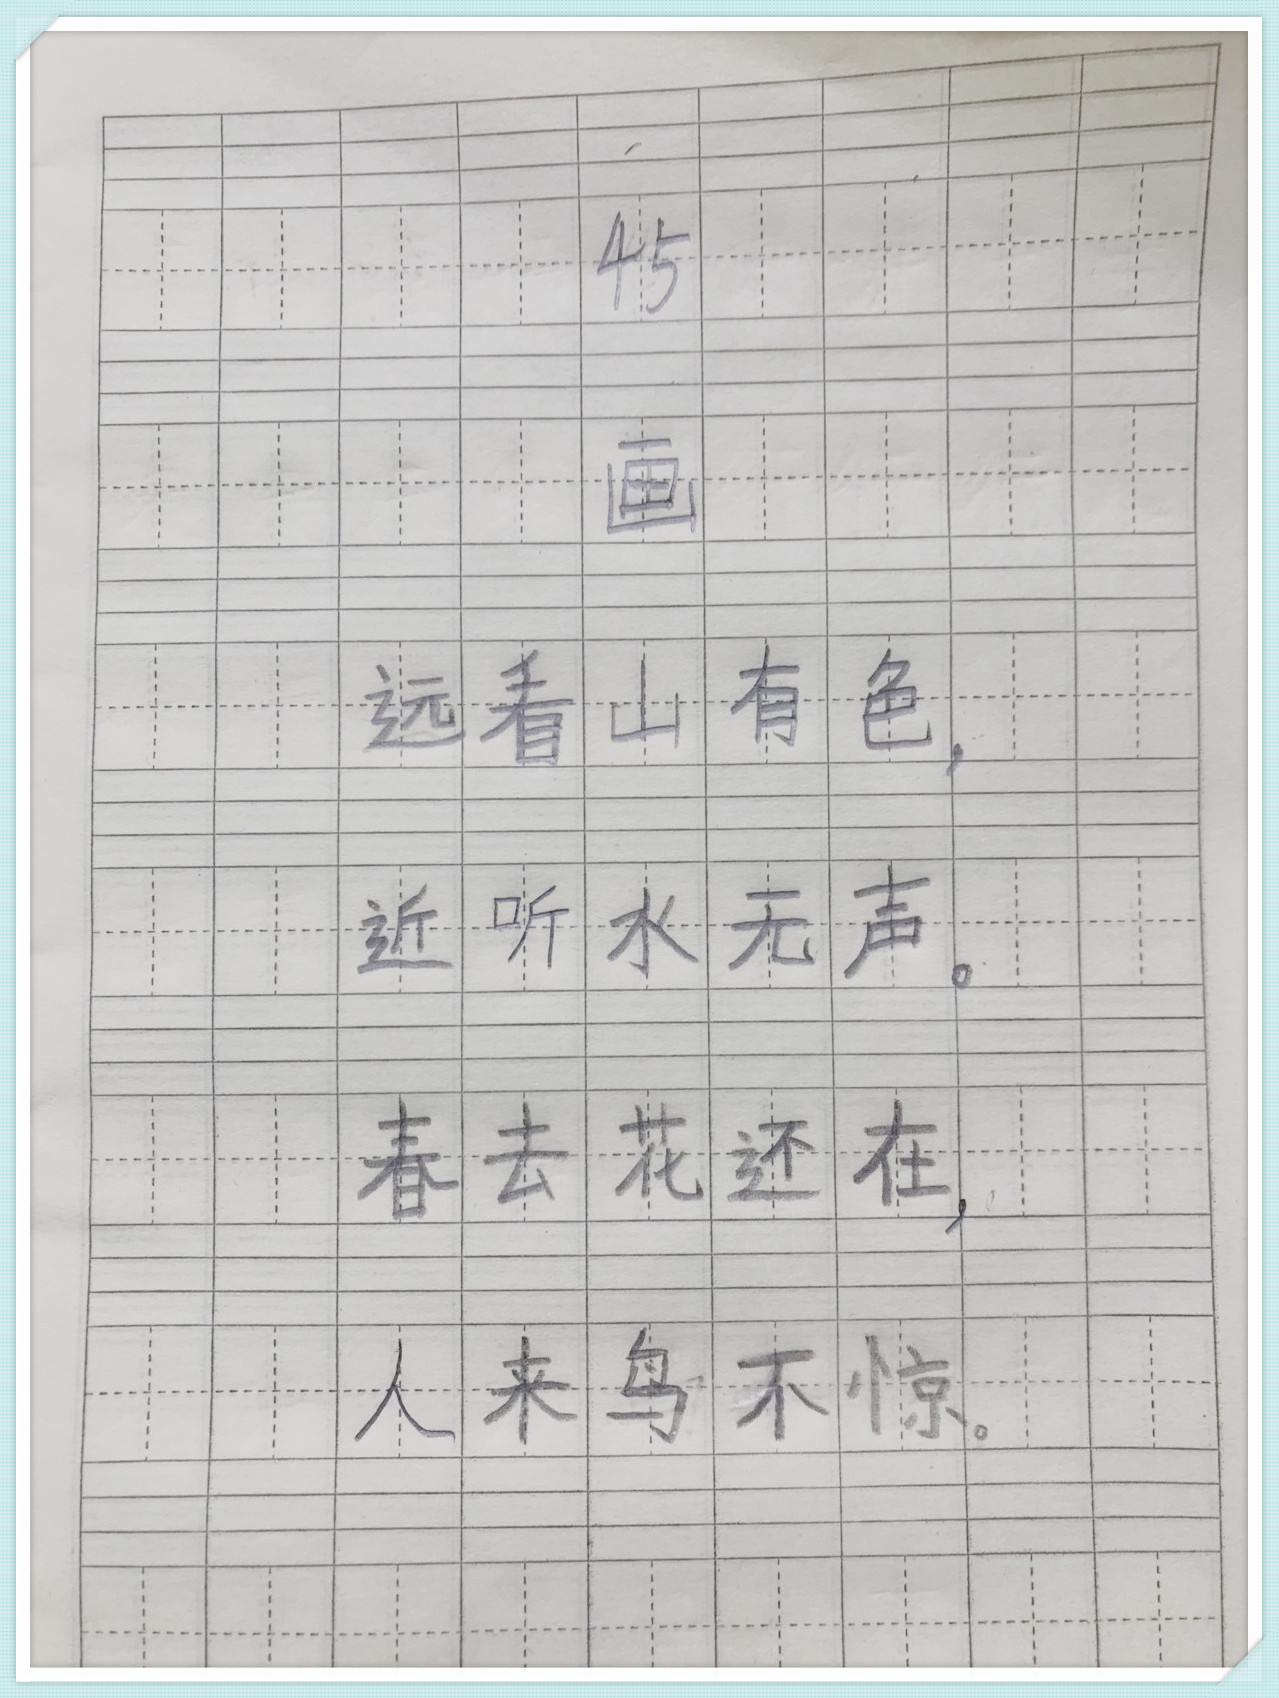 45
画
远看山有色，
近听水无声。
春去花还在，
人来鸟不惊。